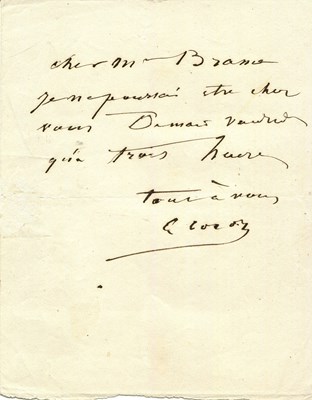 cher Mr Brame
Je ne pourrai etre cher
vous Demain vendredi
qu'a trois heure
tout à vous
C. Corot